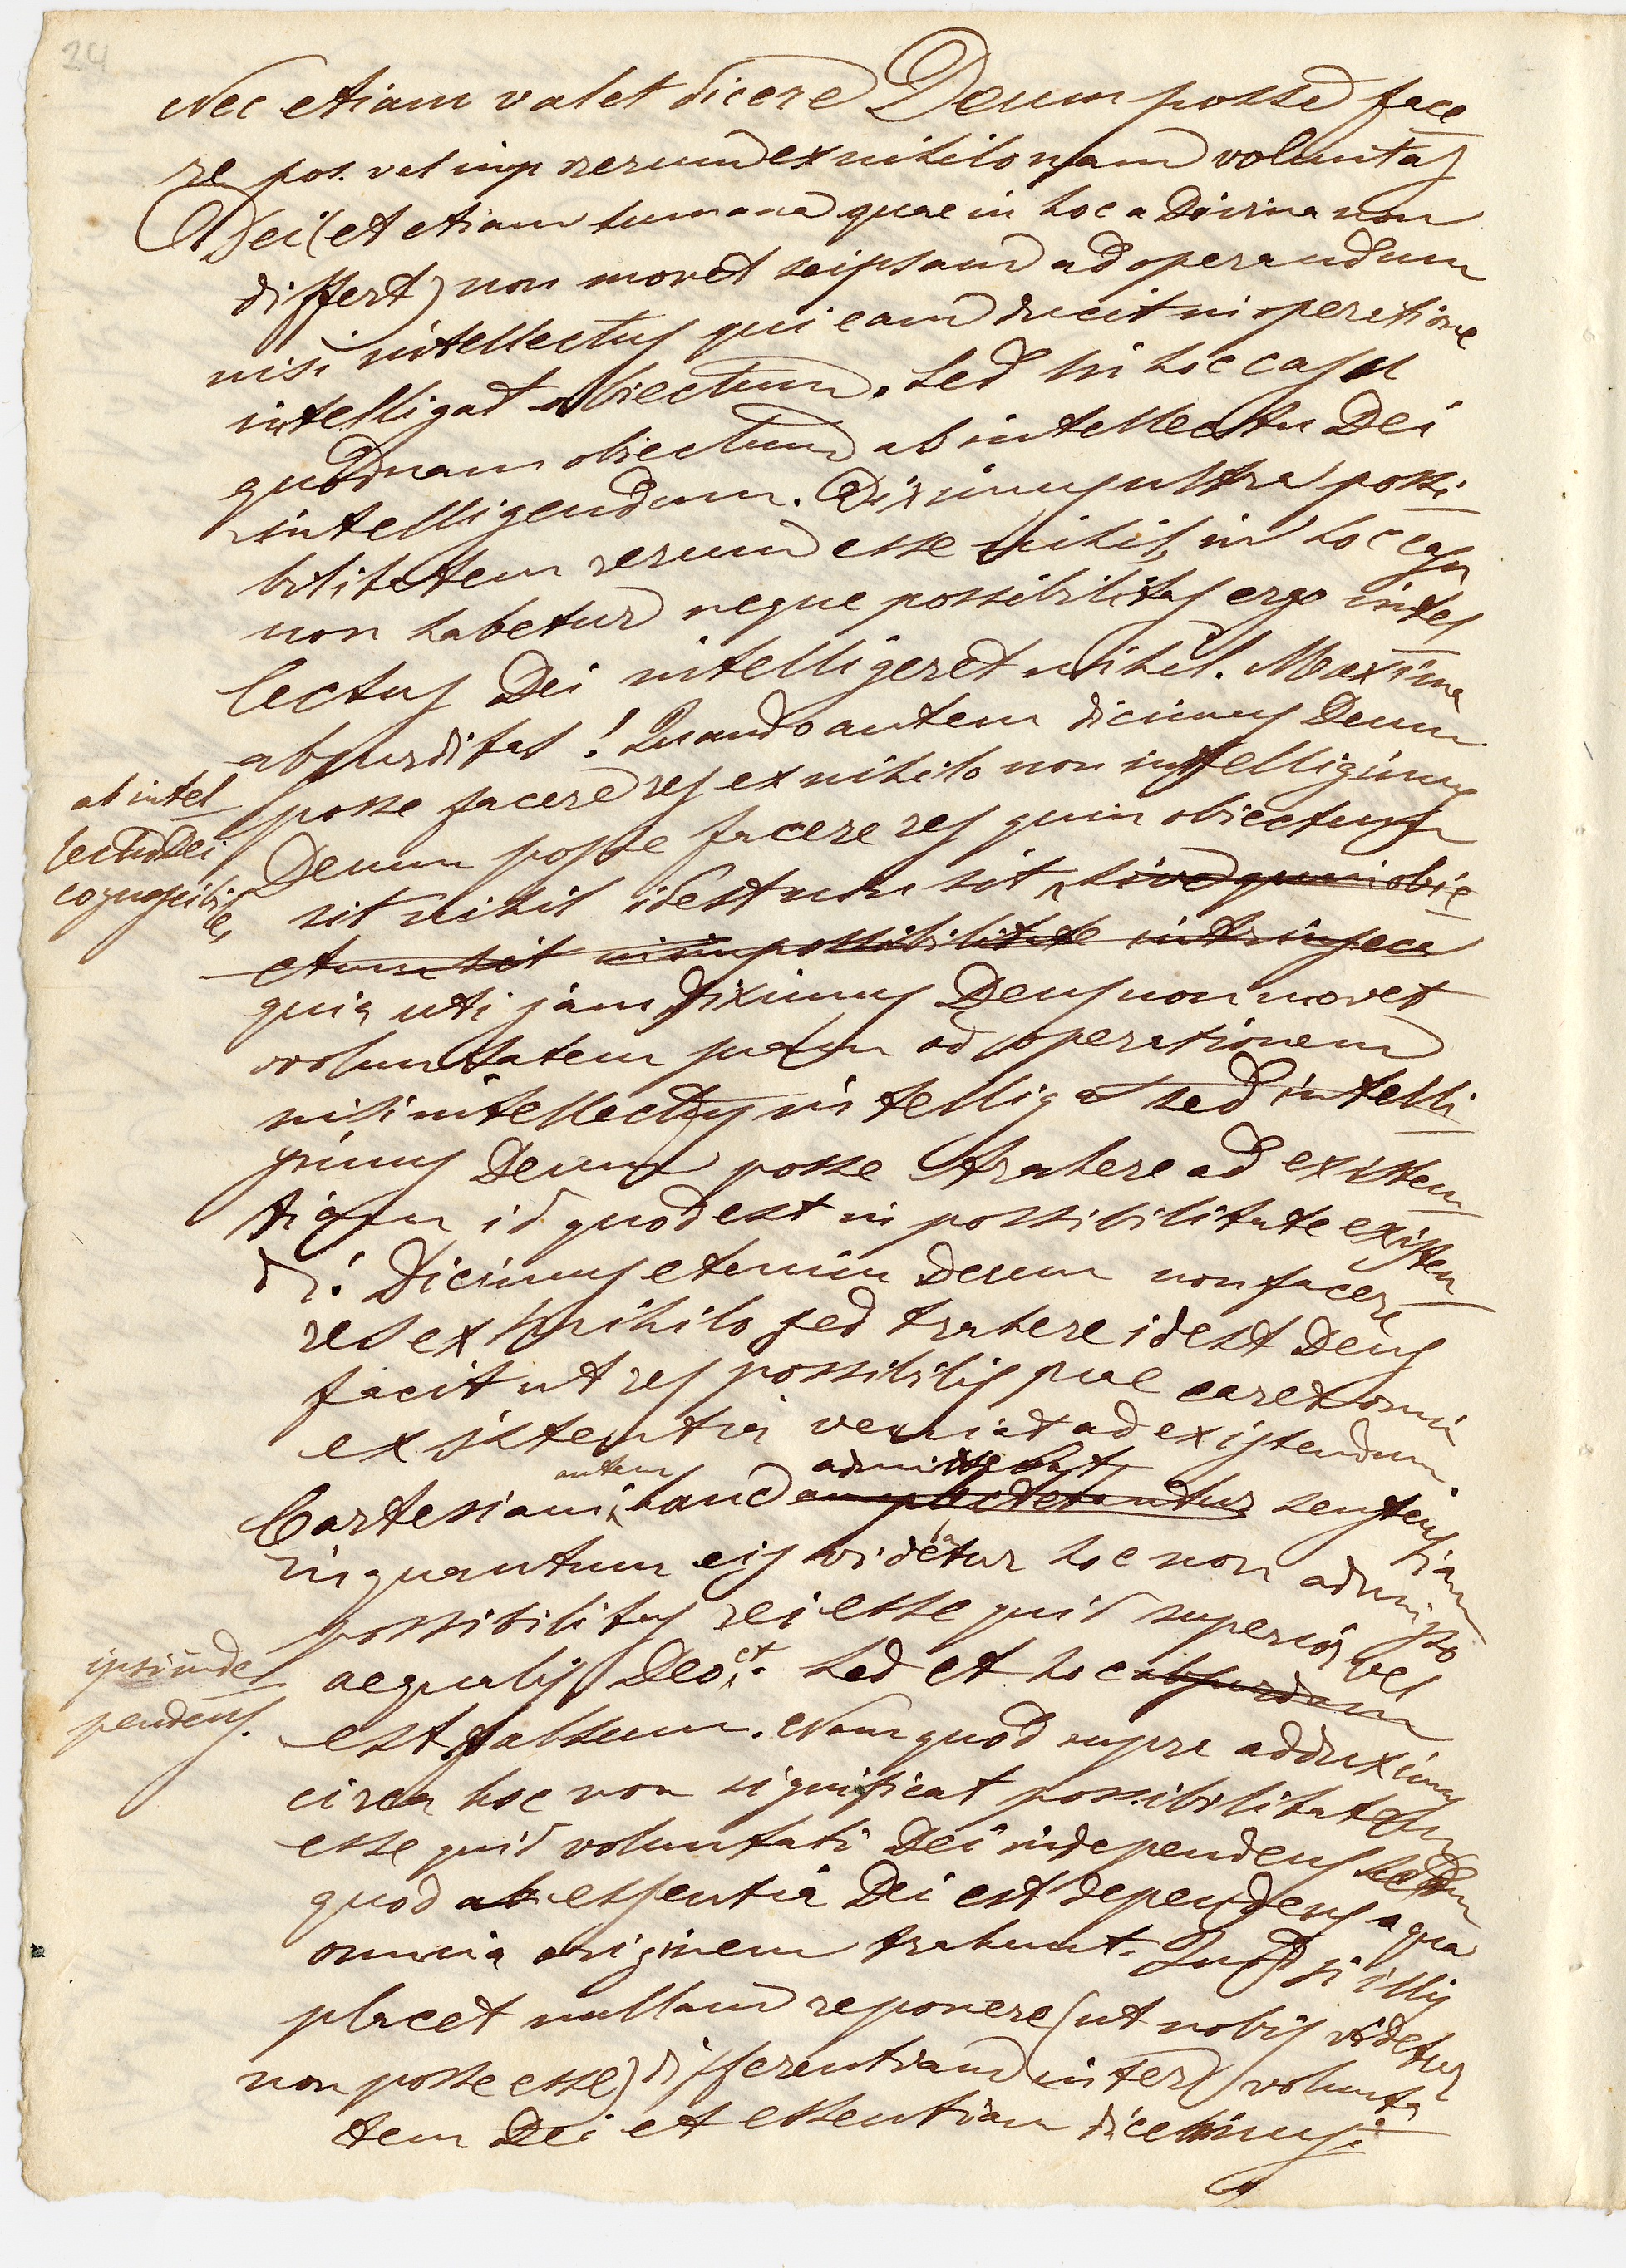 24
Nec etiam valet dicere Deum posse face
re pos. vel imp rerum ex nihilo nam voluntas
Dei (et etiam humana quae in hoc a Divina non
differt) non movet seipsam ad operandum
nisi intellectus qui eam ducit in operatione
intelligat obiectum. Sed in hoc casu
quodnam obiectum ab intellectu Dei
intelligendum. Diximus ultra possi
bilitatem rerum esse nihil, in hoc casu
non habetur neque possibilitas ergo intel
lectus Dei intelligeret nihil. Maxima
absurditas! Quando autem dicimus Deum
posse facere res ex nihilo non intelligimus
Deum posse facere res quin obiectum
sit nihil idest non sit sive quin obie
ab intel
lectu Dei
cognoscibi
le,
ctum sit in impossibilitate intrinseca
quia uti jam diximus Deus non movet
voluntatem suam ad operationem
nisi intellectus intelligat sed intelli
gimus Deum posse trahere ad existen
tiam id quod est in possibilitate existen
di. Dicimus etenim Deum non facere
res ex nihilo sed trahere idest Deus
facit ut res possibilis quae caret omni
existentia veniat ad existendum
Cartesiani autem haud amplectebantur admittebant sententiam
inquantum eis videbatur hoc non admisso
possibilitas rei esse quid superior vel
aequalis Deo, et. Sed et hoc absurdum
ipsi inde
pendens.
est falsum. Nam quod supra adduximus
circa hoc non significat possibilitatem
esse quid voluntati Dei independens
quod ab essentia Dei est dependens a qua
omnia originem trahunt. Quod si illis
placet nullam reponere (ut nobis videtur
non posse esse) differentiam inter volunta
tem Dei et essentiam dicemus: